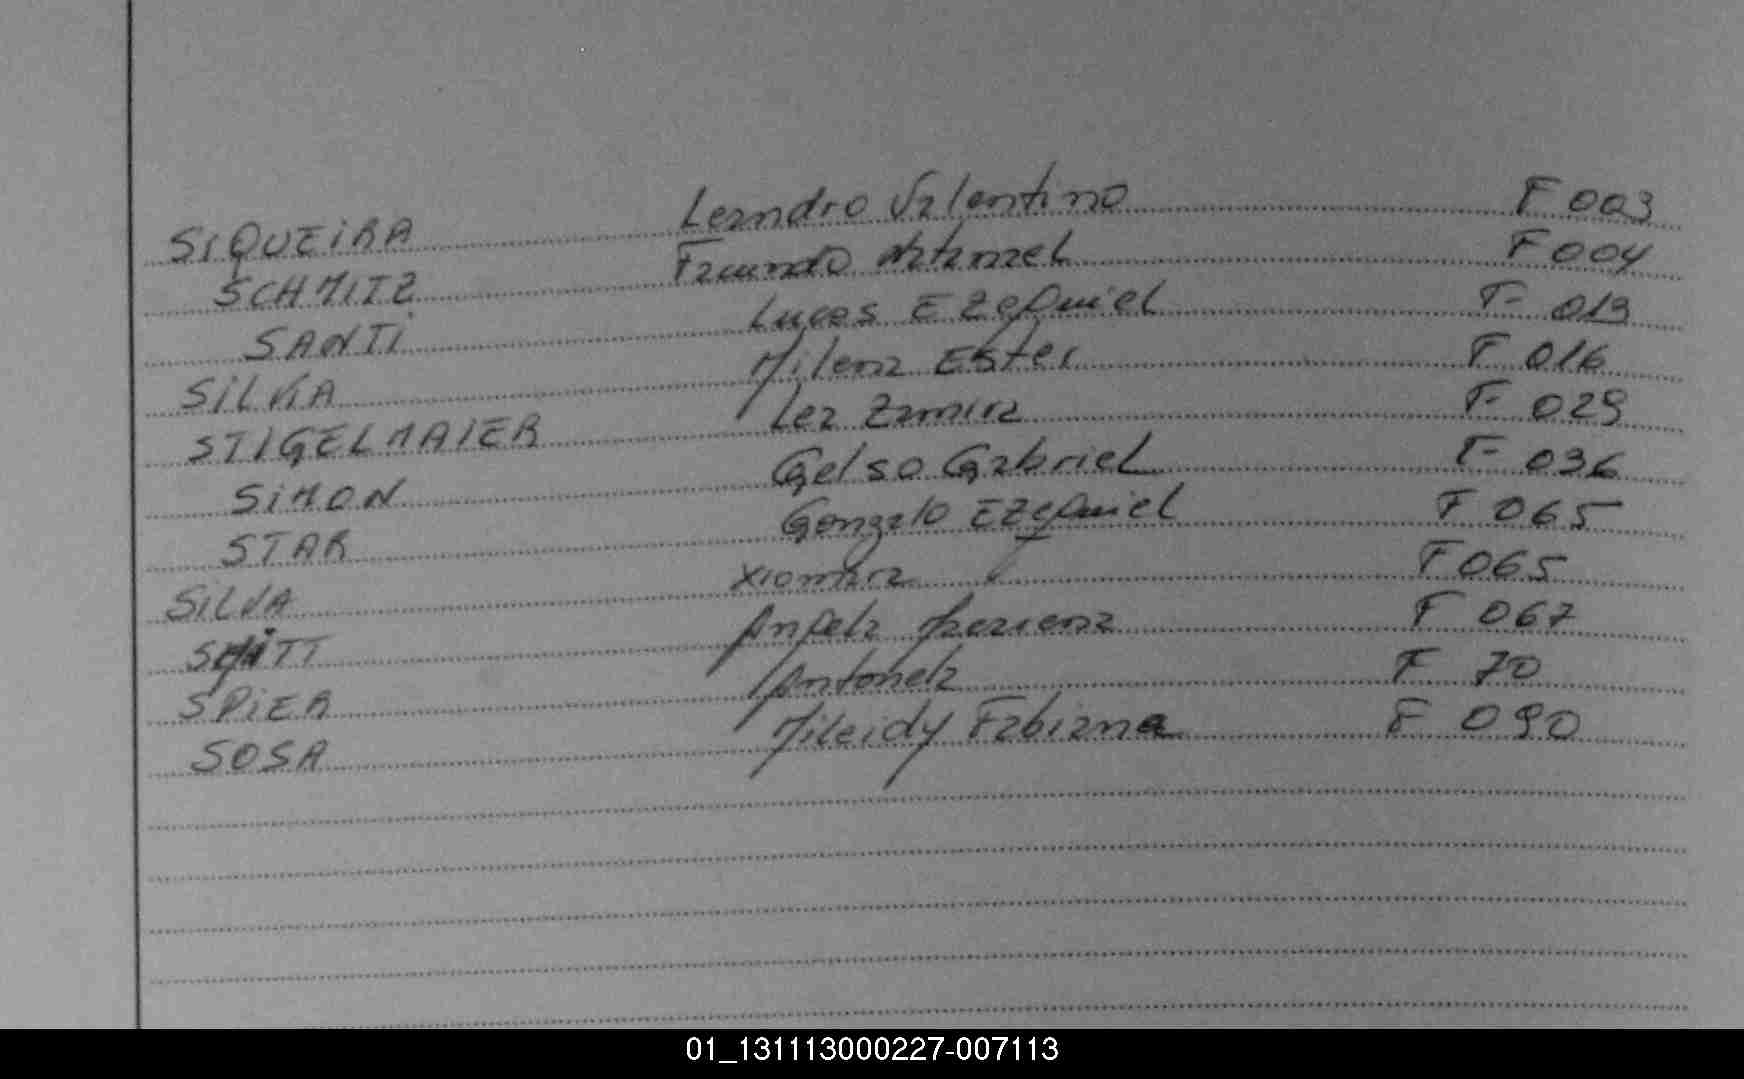 SIQUEIRA Leandro Valentino F 003
SCHMITZ Facundo Natanael F 004
SANTI Lucas Ezequiel F 019
SILVA Milena Ester F 016
STIGELMAIER Lea Zamira F 029
SIMON Gelso Gabriel F 036
STAR Gonzalo Ezequiel F 065
SILVA Xiomara F 065
Angela F 067
SPIER Antonela F 70
SOSA Mileidy Fabiana F 090
01_131113000227-007113